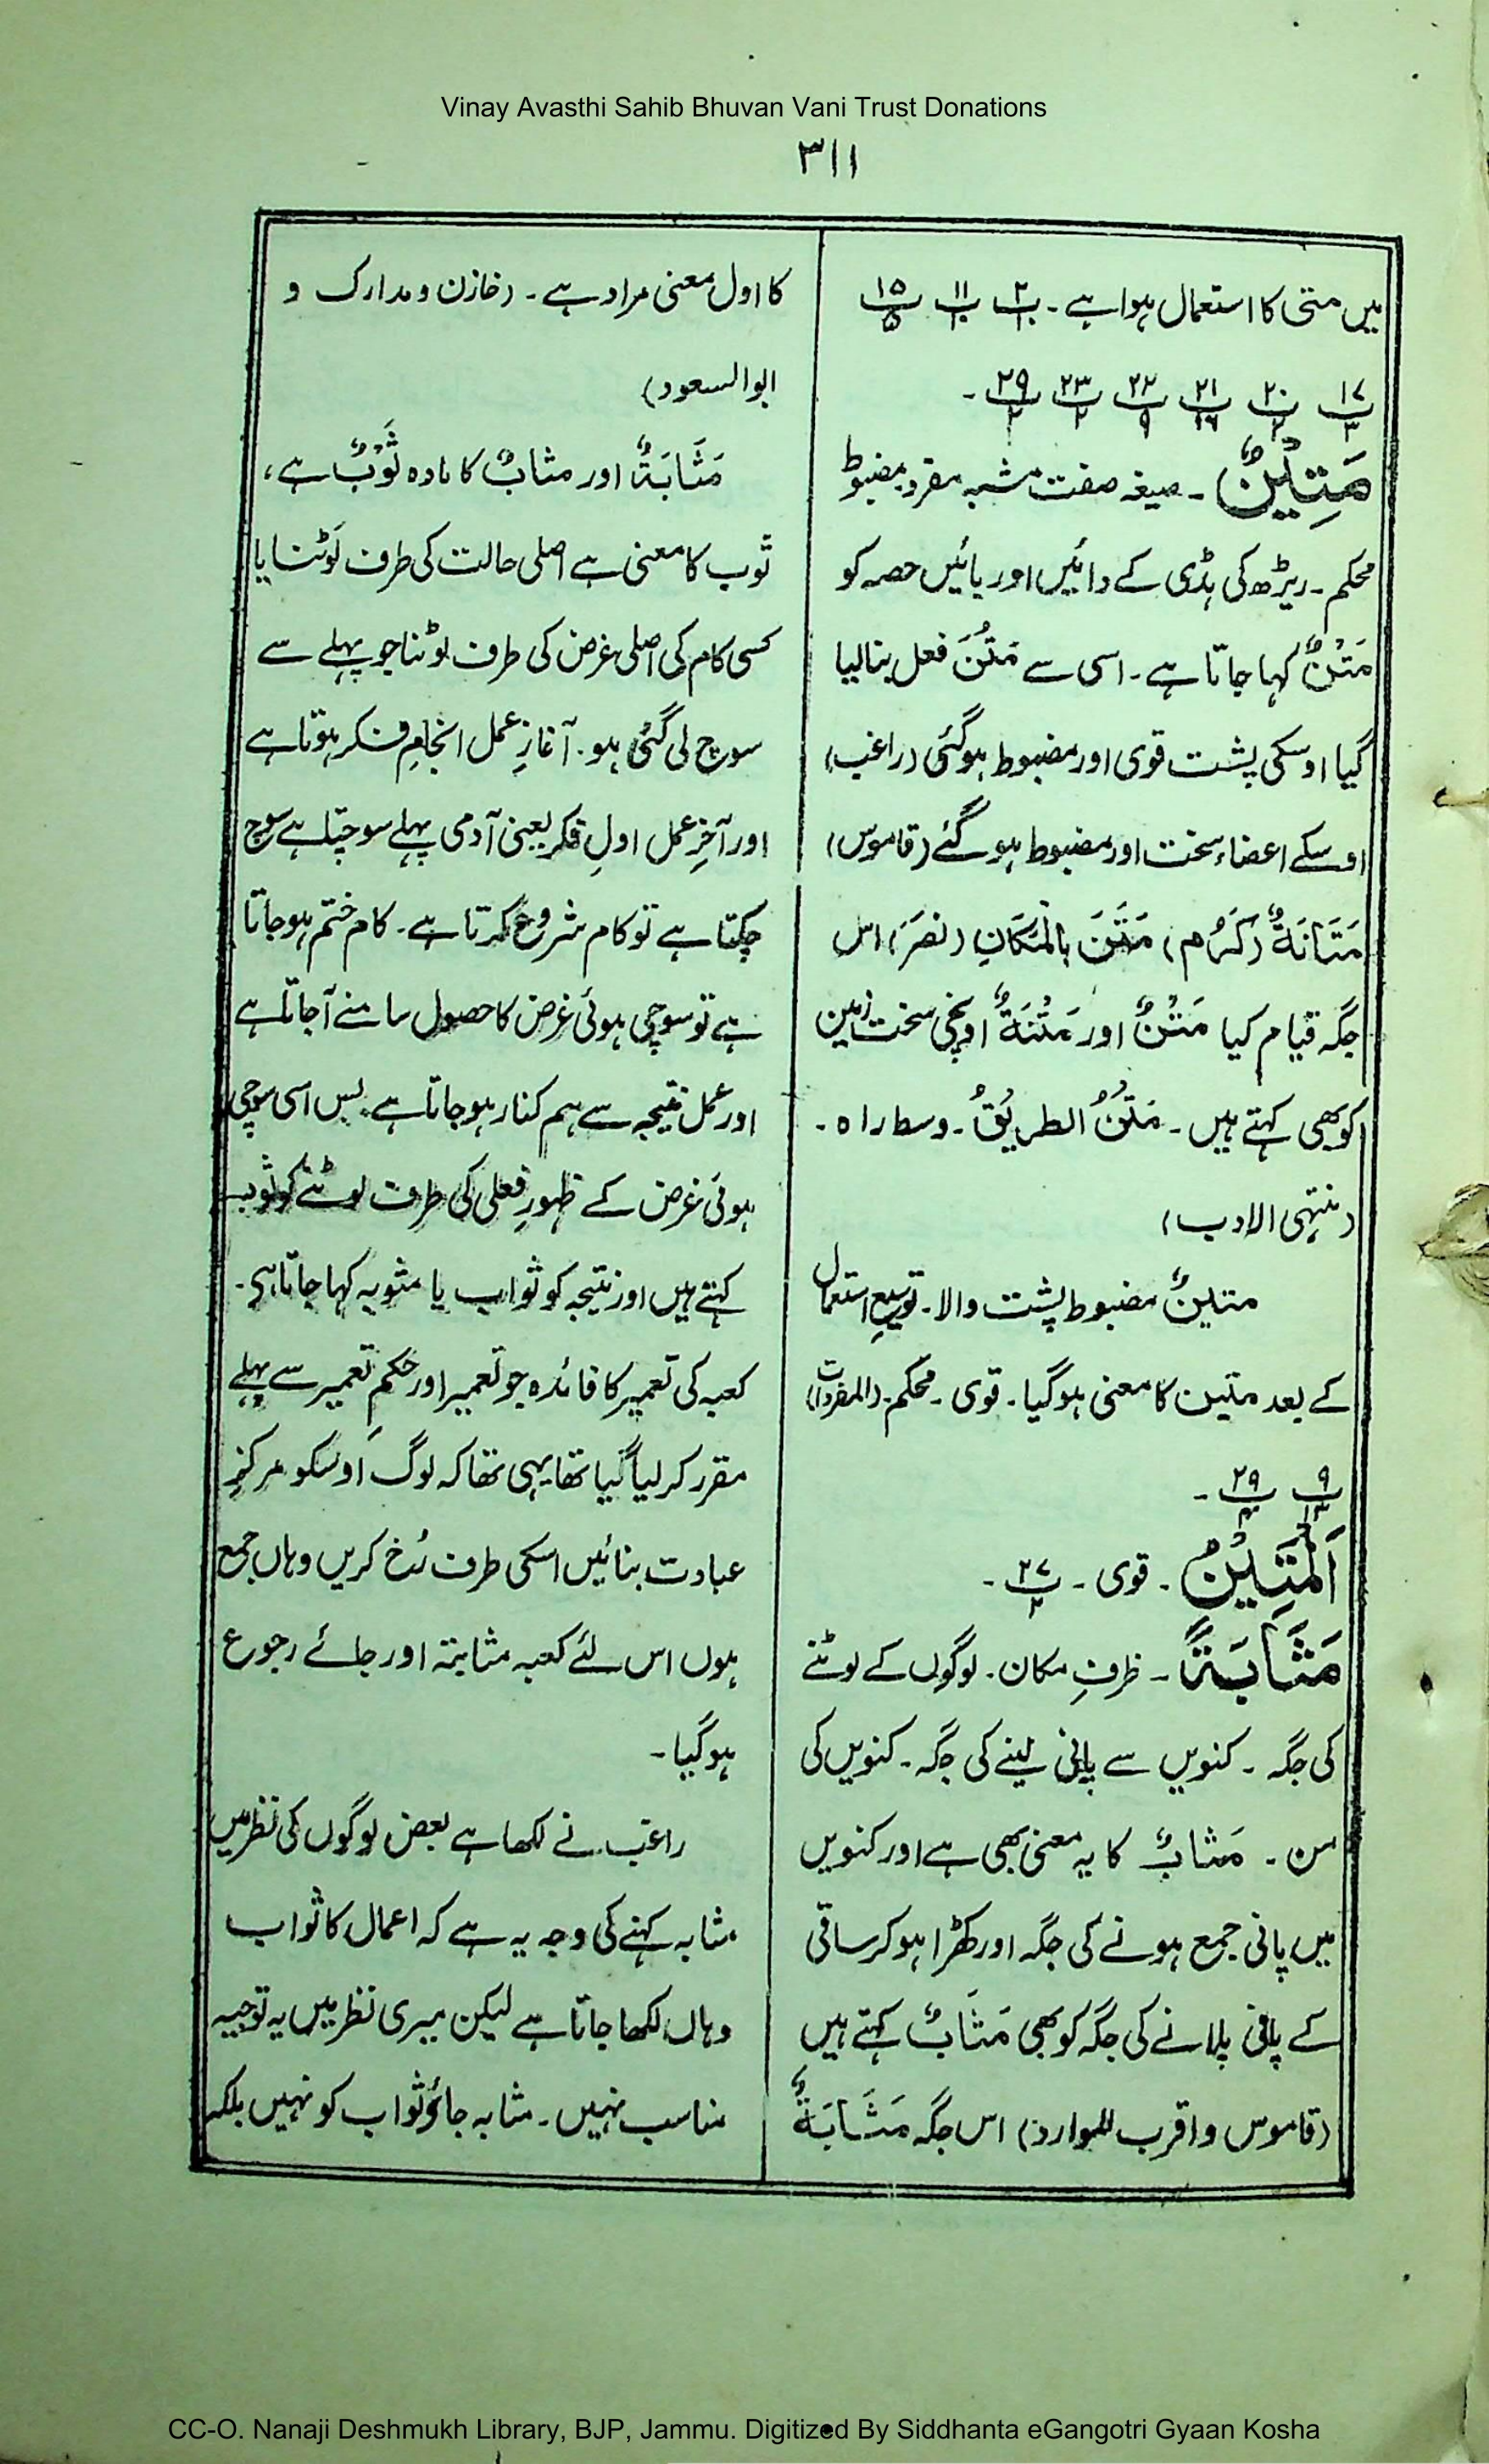 Vinay Avasthi Sahib Bhuvan Vani Trust Donations
۳۱۱
میں متیٰ کا استعمال ہوا ہے۔ پ۲ پ۱۱ پ۱۵
پ۱۷ پ۲۰ پ۲۱ پ۲۲ پ۲۳ پ۲۹ ۔
مَتِیْنٌ ۔ صیغہ صفت مشبہ مفرد مضبوط
محکم۔ ریڑھ کی ہڈی کے دائیں اور بائیں حصہ کو
مَتْنٌ کہا جاتا ہے۔ اسی سے مَتُنَ فعل بنالیا
گیا اوسکی پشت قوی اور مضبوط ہوگئی (راغب)
اوسکے اعضاء سخت اور مضبوط ہوگئے (قاموس)
مَتَانَۃٌ (کَرُمَ) مَتَنَ بِالْمَکَانِ (نصَرَ) اس
جگہ قیام کیا مَتْنٌ اور مَتْنَۃٌ اونچی سخت زمین
کو بھی کہتے ہیں۔ مَتْنُ الطریْقُ۔ وسط راہ۔
(منتہی الادب)
متینٌ مضبوط پشت والا۔ توسیعِ استعمال
کے بعد متین کا معنی ہوگیا۔ قوی۔ محکم۔ (المفردات)
پ۹ پ۲۹ ۔
اَلْمَتِیْنُ ۔ قوی ۔ پ۲۷ ۔
مَثَابَۃً ۔ ظرفِ مکان۔ لوگوں کے لوٹنے
کی جگہ ۔ کنویں سے پانی لینے کی جگہ۔ کنویں کی
من ۔ مَثابٌ کا یہ معنی بھی ہے اور کنویں
میں پانی جمع ہونے کی جگہ اور کھڑا ہو کر ساقی
کے پانی پلانے کی جگہ کو بھی مَثَابٌ کہتے ہیں
(قاموس و اقرب الموارد) اس جگہ مَثَابَۃٌ
کا اول معنی مراد ہے۔ (خازن و مدارک و
ابوالسعود)
مَثَابَۃٌ اور مثابٌ کا مادہ ثَوْبٌ ہے،
ثوب کا معنی ہے اصلی حالت کی طرف لَوٹنا یا
کسی کام کی اصلی غرض کی طرف لوٹنا جو پہلے سے
سوچ لی گئی ہو۔ آغازِ عمل انجامِ فکر ہوتا ہے
اور آخرِ عمل اولِ فکر یعنی آدمی پہلے سوچتا ہے سوچ
چکتا ہے تو کام شروع کرتا ہے۔ کام ختم ہو جاتا
ہے تو سوچی ہوئی غرض کا حصول سامنے آجاتا ہے
اور عمل نتیجہ سے ہم کنار ہو جاتا ہے بس اسی سوچی
ہوئی غرض کے ظہورِ فعلی کی طرف لوٹنے کو ثوب
کہتے ہیں اور نتیجہ کو ثواب یا مثوبہ کہا جاتا ہی۔
کعبہ کی تعمیر کا فائدہ جو تعمیر اور حکمِ تعمیر سے پہلے
مقرر کر لیا گیا تھا یہی تھا کہ لوگ اُوسکو مرکزِ
عبادت بنائیں اسکی طرف رُخ کریں وہاں جمع
ہوں اس لئے کعبہ مثابتہ اور جائے رجوع
ہوگیا۔
راغب نے لکھا ہے بعض لوگوں کی نظر میں
مثابہ کہنے کی وجہ یہ ہے کہ اعمال کا ثواب
وہاں لکھا جاتا ہے لیکن میری نظر میں یہ توجیہ
مناسب نہیں۔ مثابہ جاؤ ثواب کو نہیں بلکہ
CC-O. Nanaji Deshmukh Library, BJP, Jammu. Digitized By Siddhanta eGangotri Gyaan Kosha